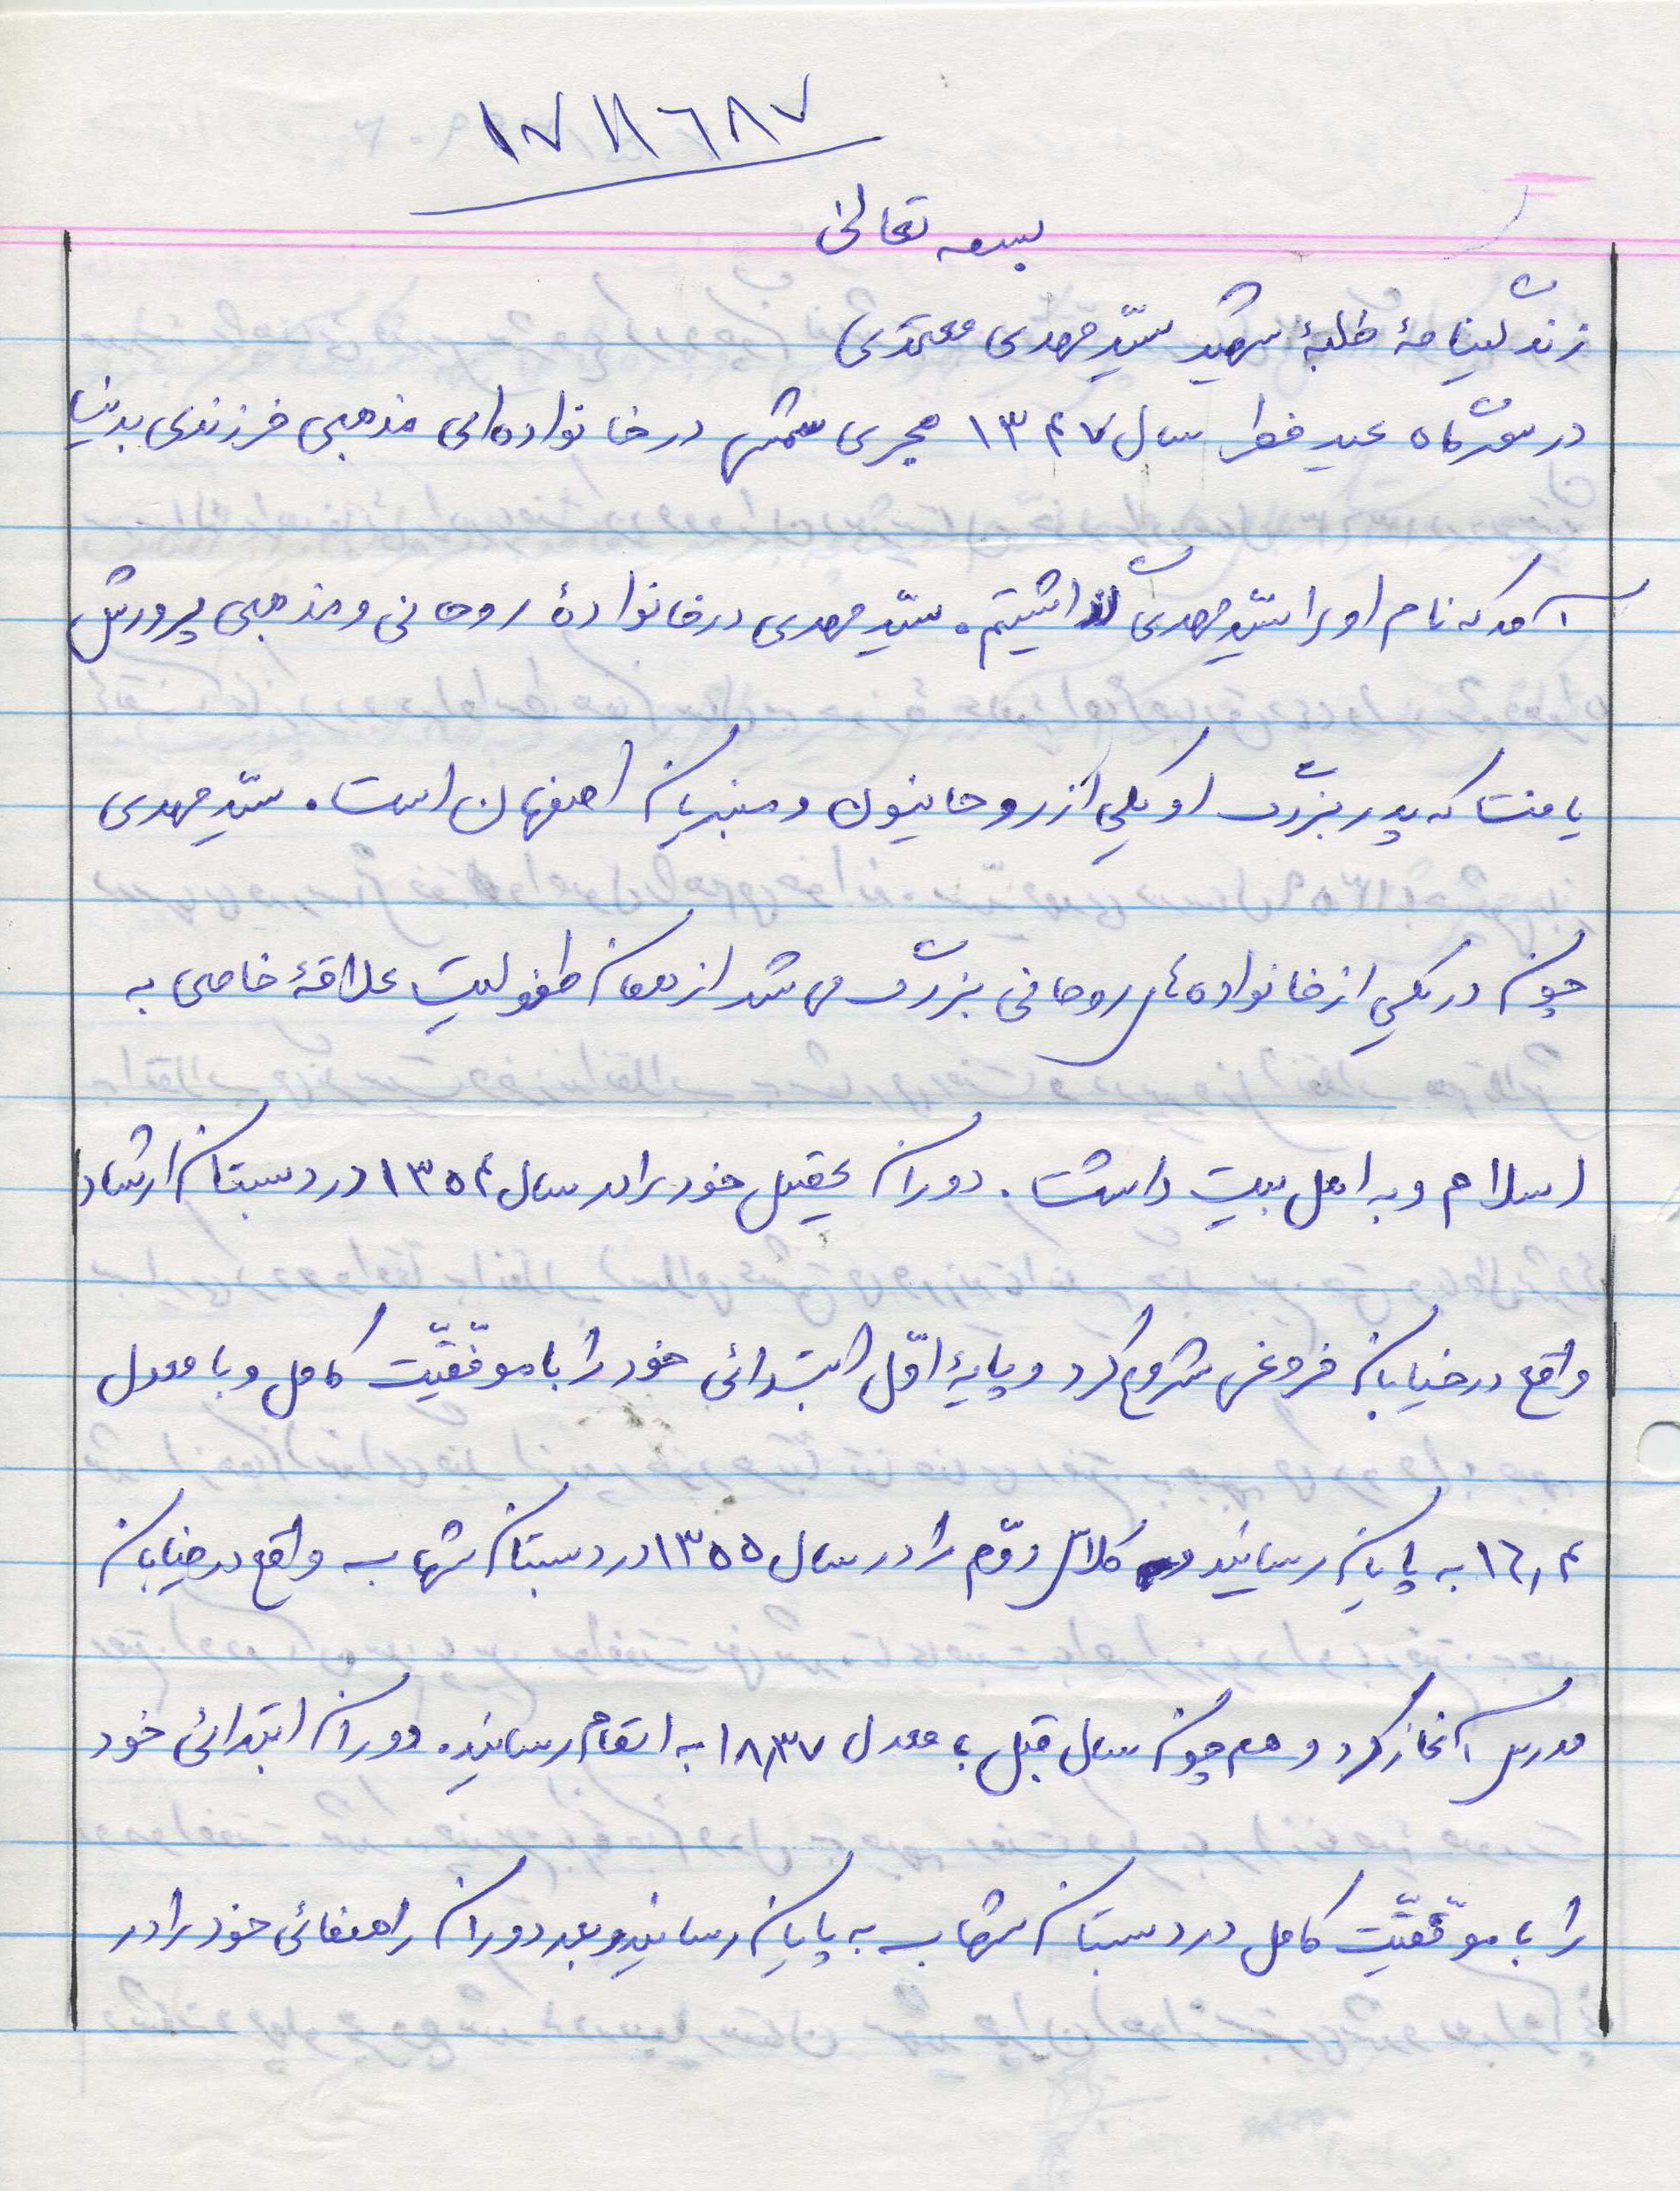 ۱۷۱۱۶۸۷
بسمه تعالی
زندگینامهٔ طلبهٔ شهید سیّد مهدی معتمدی
در سحرگاه عید فطر سال ۱۳۴۷ هجری شمسی در خانواده‌ای مذهبی فرزندی بدنیا
آمد که نام او را سیّد مهدی گذاشتیم. سیّد مهدی در خانوادهٔ روحانی و مذهبی پرورش
یافت که پدر بزرگ او یکی از روحانیون و منبریان اصفهان است. سیّد مهدی
چون در یکی از خانواده‌های روحانی بزرگ می شد از همان طفولیت علاقهٔ خاصی به
اسلام و به اهل بیت داشت. دوران تحصیل خود را در سال ۱۳۵۴ در دبستان ارشاد
واقع در خیابان فروغی شروع کرد و پایهٔ اوّل ابتدائی خود را با موفّقیّت کامل و با معدل
۱۶٫۴ به پایان رسانید کلاس دوّم را در سال ۱۳۵۵ در دبستان شهاب واقع در خیابان
مدرس آغاز کرد و هم چون سال قبل با معدل ۱۸٫۳۷ به اتمام رسانید. دوران ابتدائی خود
را با موفّقیّت کامل در دبستان شهاب به پایان رسانید و بعد دوران راهنمائی خود را در